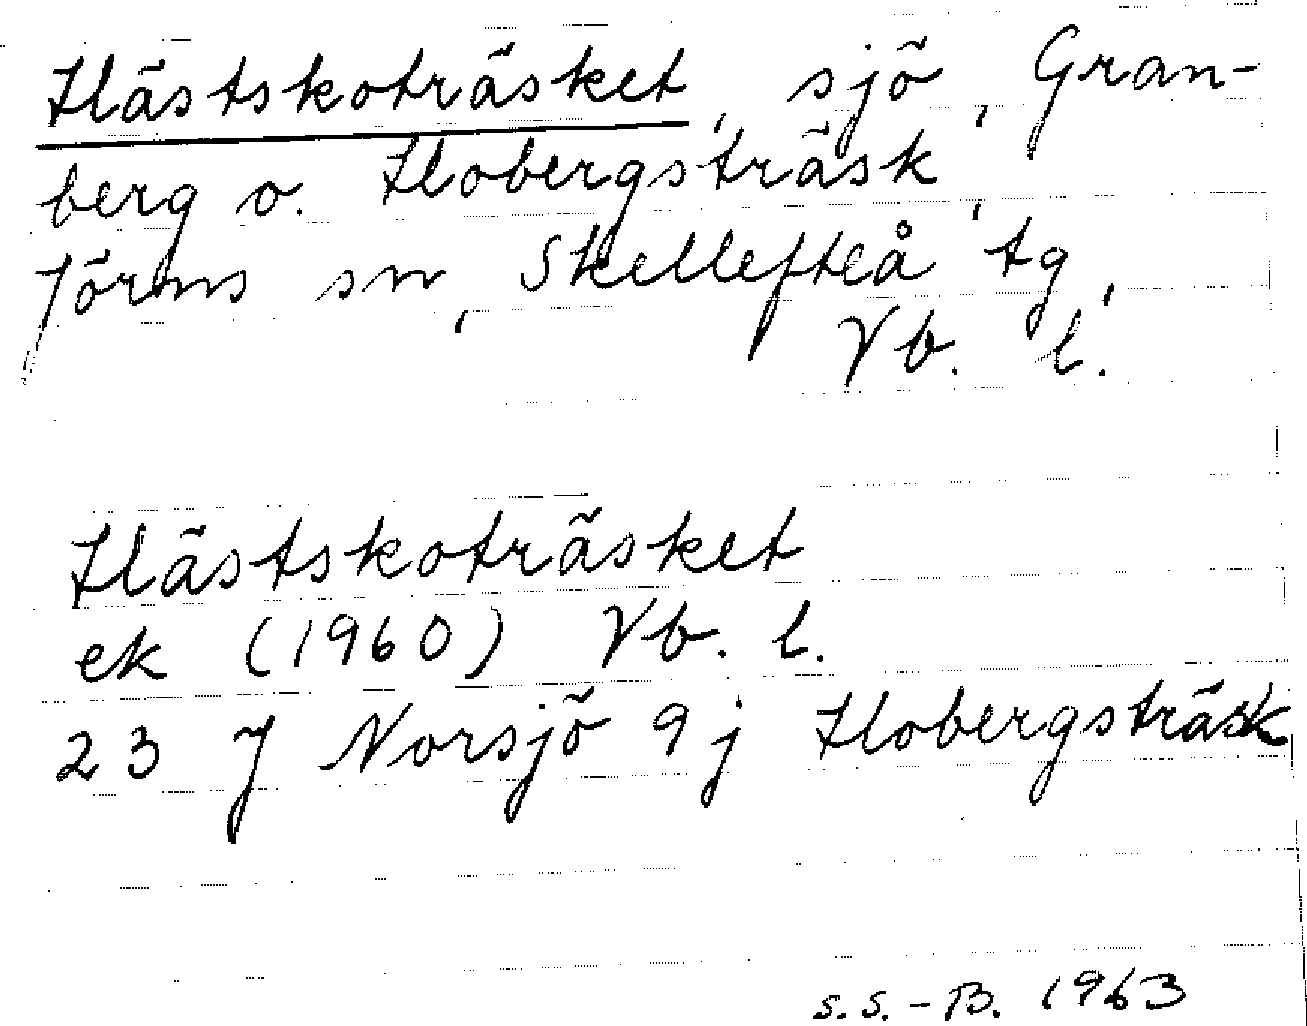 Hästskoträsket, sjö, Gran-
berg o. Hobergsträsk,
Jörns sn, Skellefteå tg,
Vb. l.
Hästskoträsket
ek (1960) Vb. l.
23 J Norsjö 9j Hobergsträsk
S.S.-B. 1963